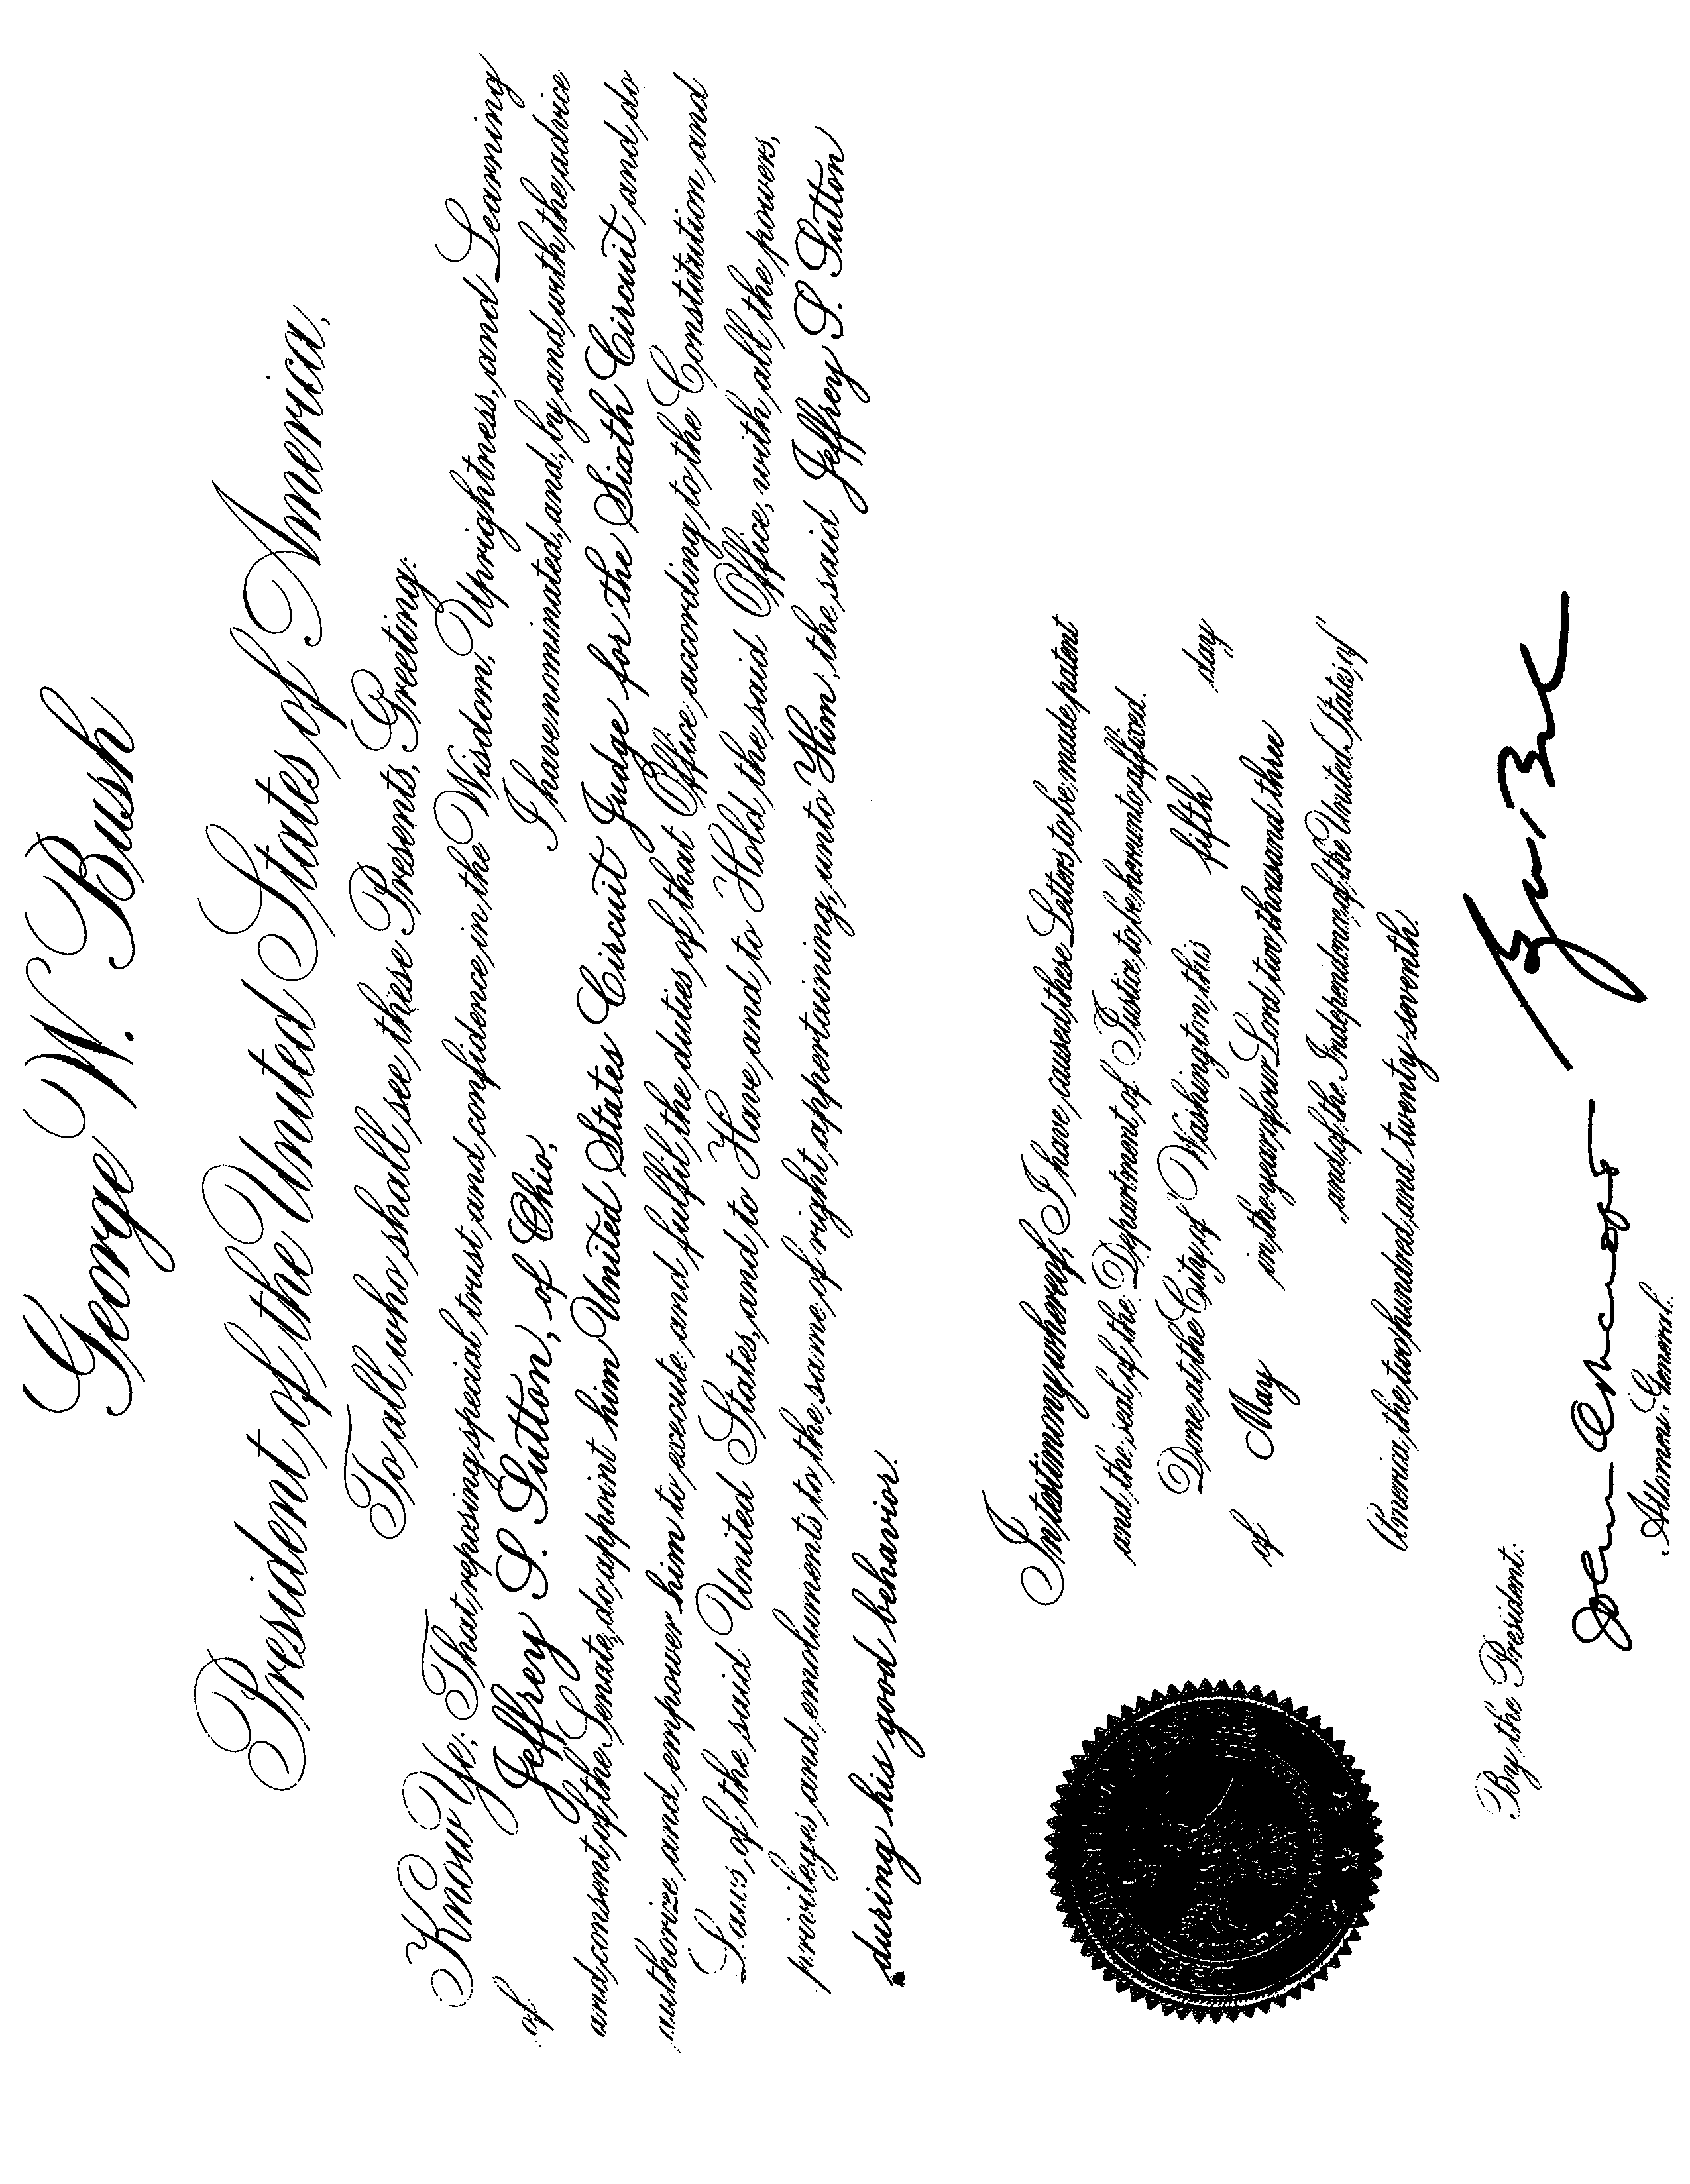 George W. Bush
President of the United States of America,
To all who shall see these Presents, Greeting:
Know Ye: That reposing special trust and confidence in the Wisdom, Uprightness, and Learning
of Jeffrey S. Sutton, of Ohio, I have nominated, and, by and with the advice
and consent of the Senate, do appoint him United States Circuit Judge for the Sixth Circuit and do
authorize and empower him to execute and fulfil the duties of that Office according to the Constitution and
Laws of the said United States, and to Have and to Hold the said Office, with all the powers,
privileges and emoluments to the same of right appertaining, unto Him, the said Jeffrey S. Sutton
during his good behavior.
In testimony whereof, I have caused these Letters to be made patent
and the seal of the Department of Justice to be hereunto affixed.
Done at the City of Washington this fifth day
of May in the year of our Lord two thousand three
and of the Independence of the United States of
America the two hundred and twenty-seventh.
By the President:
John Ashcroft
Attorney General.